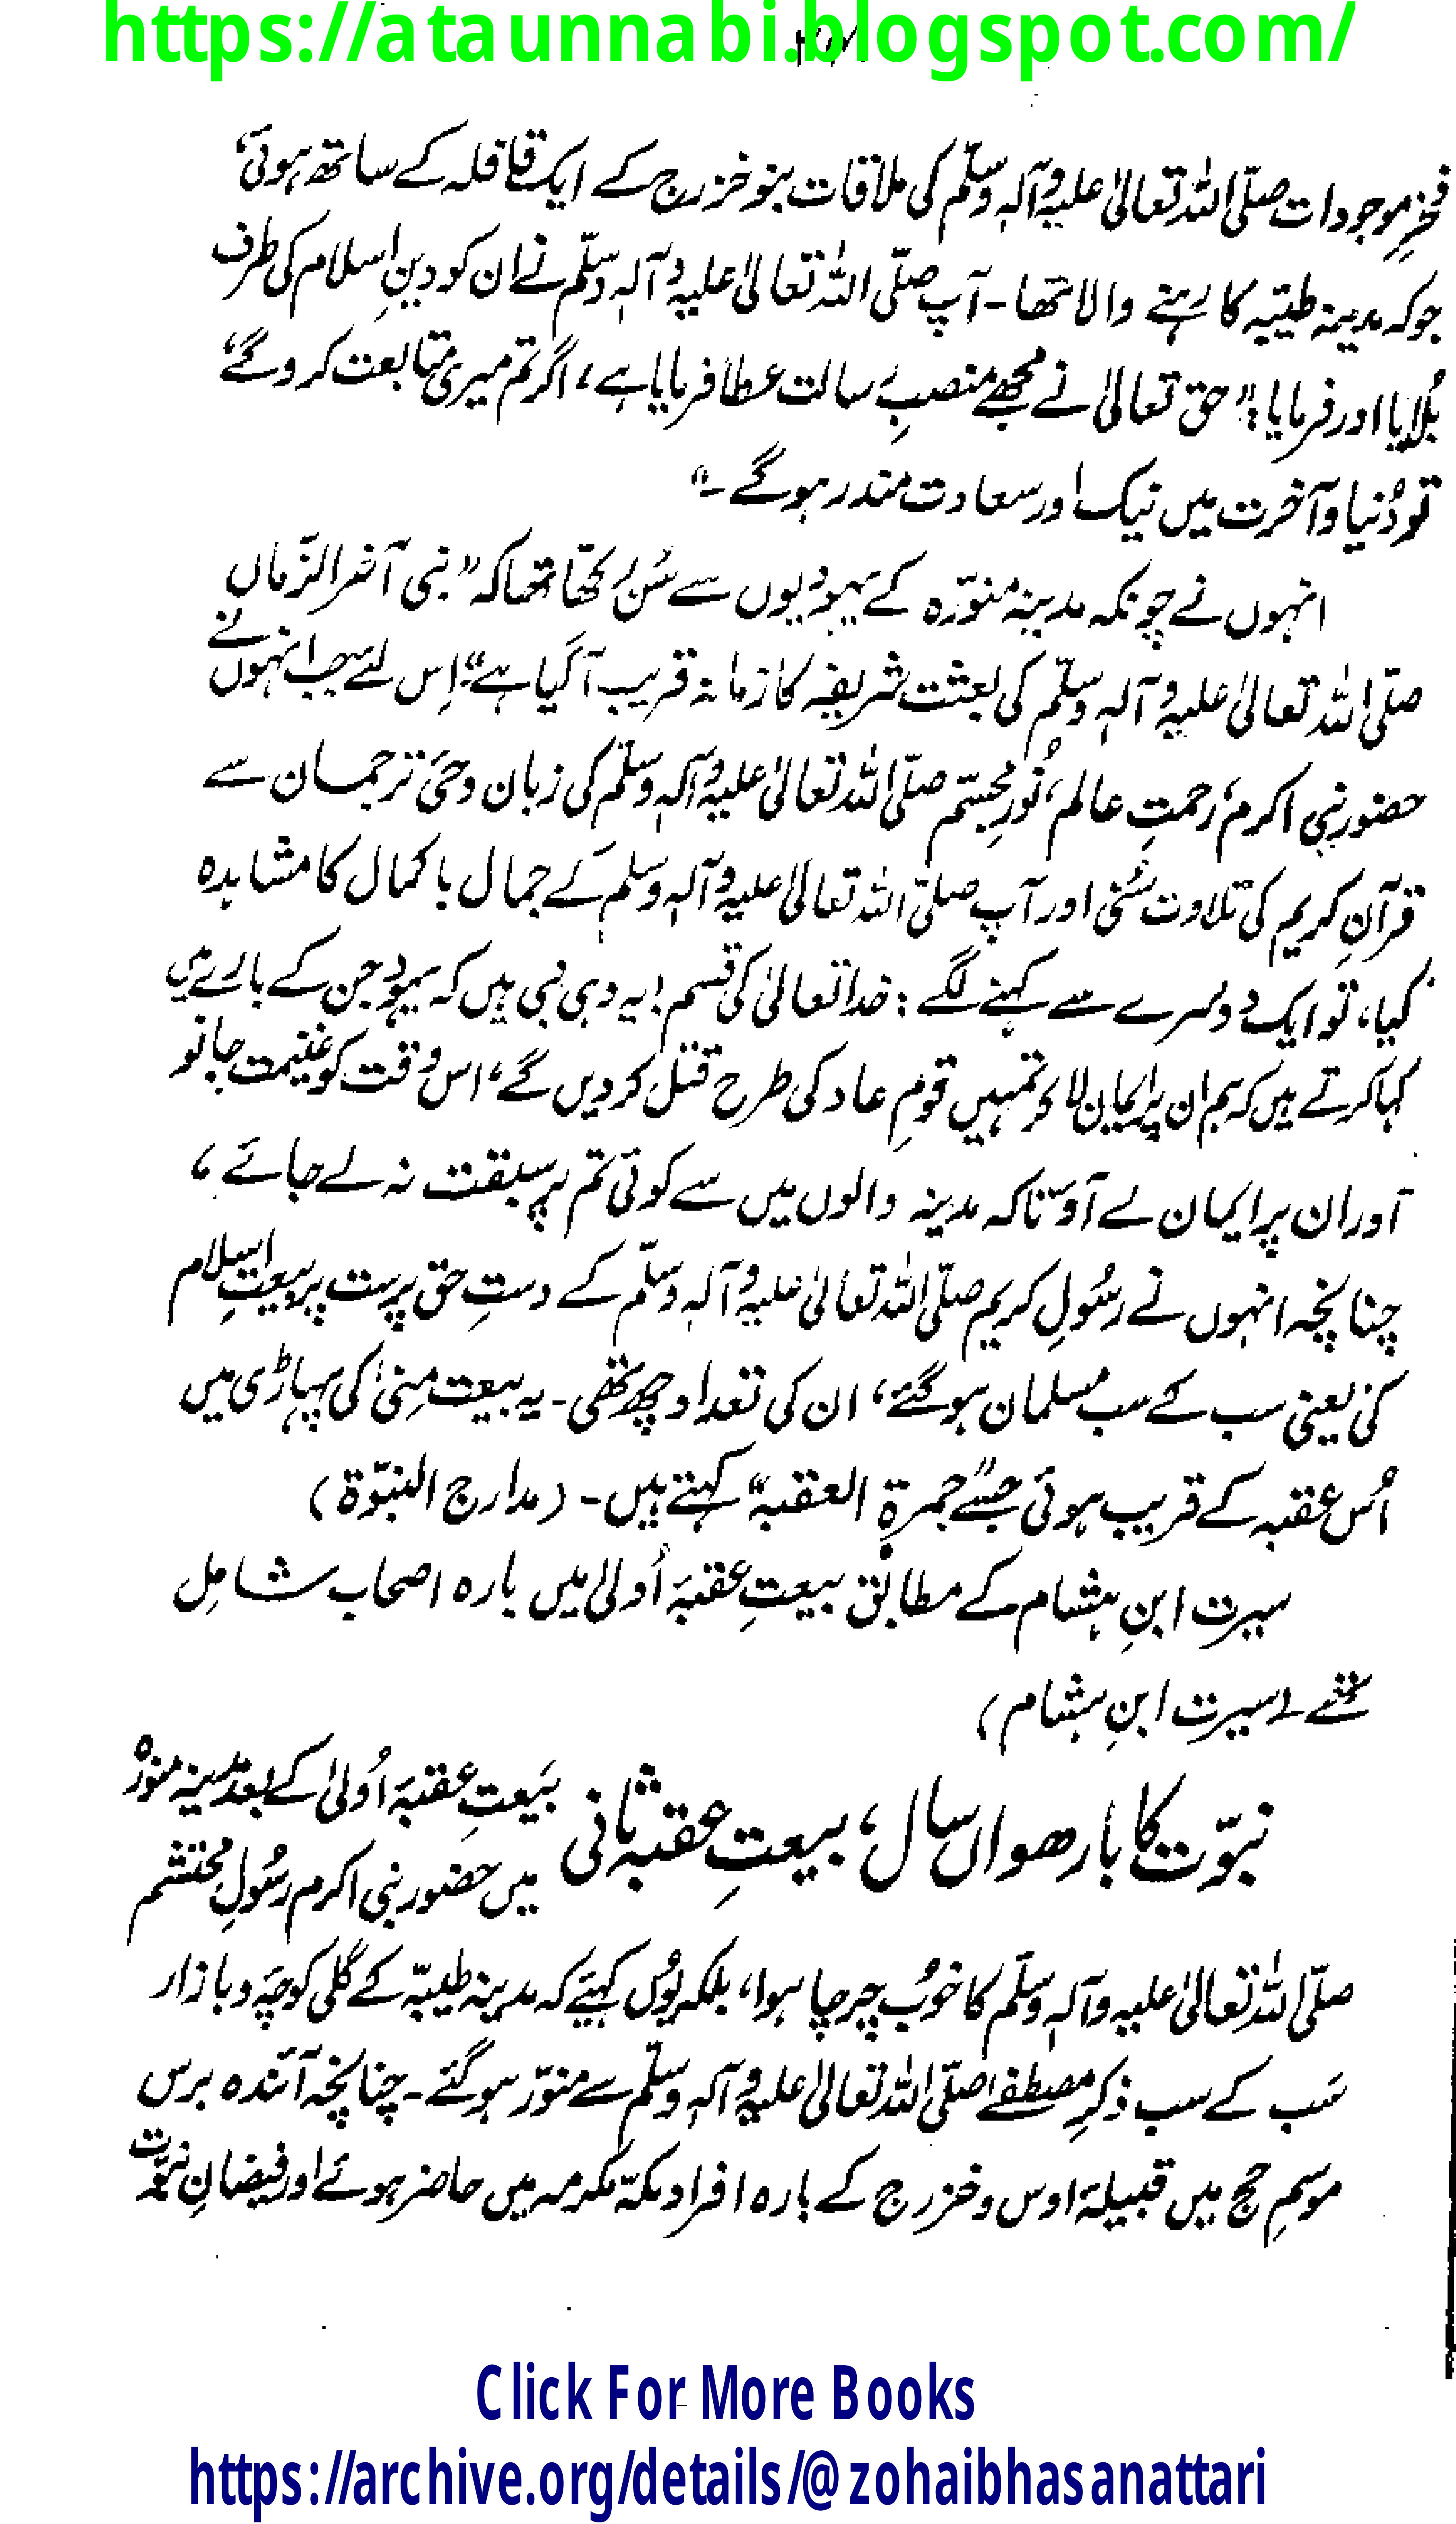 https://ataunnabi.blogspot.com/
فخرِ موجودات صلّی اللہ تعالیٰ علیہ وآلہٖ وسلّم کی ملاقات بنو خزرج کے ایک قافلہ کے ساتھ ہوئی،
جو کہ مدینہ طیّبہ کا رہنے والا تھا۔ آپ صلّی اللہ تعالیٰ علیہ وآلہٖ وسلّم نے ان کو دینِ اسلام کی طرف
بُلایا اور فرمایا: "حق تعالیٰ نے مجھے منصبِ رسالت عطا فرمایا ہے، اگر تم میری متابعت کروگے،
تو دُنیا و آخرت میں نیک اور سعادت مند رہو گے۔"
انہوں نے چونکہ مدینہ منوّرہ کے یہودیوں سے سُن رکھا تھا کہ "نبی آخر الزّماں
صلّی اللہ تعالیٰ علیہ وآلہٖ وسلّم کی بعثت شریفہ کا زمانہ قریب آ گیا ہے" اِس لئے جب انہوں نے
حضور نبی اکرم، رحمتِ عالم، نُورِ مجسّم صلّی اللہ تعالیٰ علیہ وآلہٖ وسلّم کی زبان وحیٔ ترجمان سے
قرآنِ کریم کی تلاوت سُنی اور آپ صلّی اللہ تعالیٰ علیہ وآلہٖ وسلم کے جمال باکمال کا مشاہدہ
کیا، تو ایک دوسرے سے کہنے لگے: خدا تعالیٰ کی قسم! یہ وہی نبی ہیں کہ یہود جن کے بارے میں
کہا کرتے ہیں کہ ہم ان پر ایمان لا کر تمہیں قومِ عاد کی طرح قتل کر دیں گے، اس وقت کو غنیمت جانو
اور ان پر ایمان لے آؤ تاکہ مدینہ والوں میں سے کوئی تم پر سبقت نہ لے جائے،
چنانچہ انہوں نے رسُولِ کریم صلّی اللہ تعالیٰ علیہ وآلہٖ وسلّم کے دستِ حق پرست پر بیعتِ اسلام
کی یعنی سب کے سب مسلمان ہو گئے، ان کی تعداد چھ تھی۔ یہ بیعت مِنیٰ کی پہاڑی میں
اُس عقبہ کے قریب ہوئی جسے "جمرۃ العقبہ" کہتے ہیں۔ (مدارج النبوّۃ)
سیرت ابنِ ہشام کے مطابق بیعتِ عقبۂ اُولیٰ میں بارہ اصحاب شامل
تھے۔ (سیرت ابنِ ہشام)
نبوّت کا بارھواں سال، بیعتِ عقبہ ثانی
بیَعتِ عقبۂ اُولیٰ کے بعد مدینہ منورہ
میں حضور نبی اکرم رسُولِ محتشم
صلّی اللہ تعالیٰ علیہ وآلہٖ وسلّم کا خوُب چرچا ہوا، بلکہ یوُں کہیئے کہ مدینہ طیبّہ کے گلی کوچۂ و بازار
سَب کے سب ذکرِ مصطفےٰ صلّی اللہ تعالیٰ علیہ وآلہٖ وسلّم سے منوّر ہو گئے۔ چنانچہ آئندہ برس
موسمِ حج میں قبیلۂ اوس و خزرج کے بارہ افراد مکّہ مکرمہ میں حاضر ہوئے اور فیضانِ نبوّت
Click For More Books
https://archive.org/details/@zohaibhasanattari